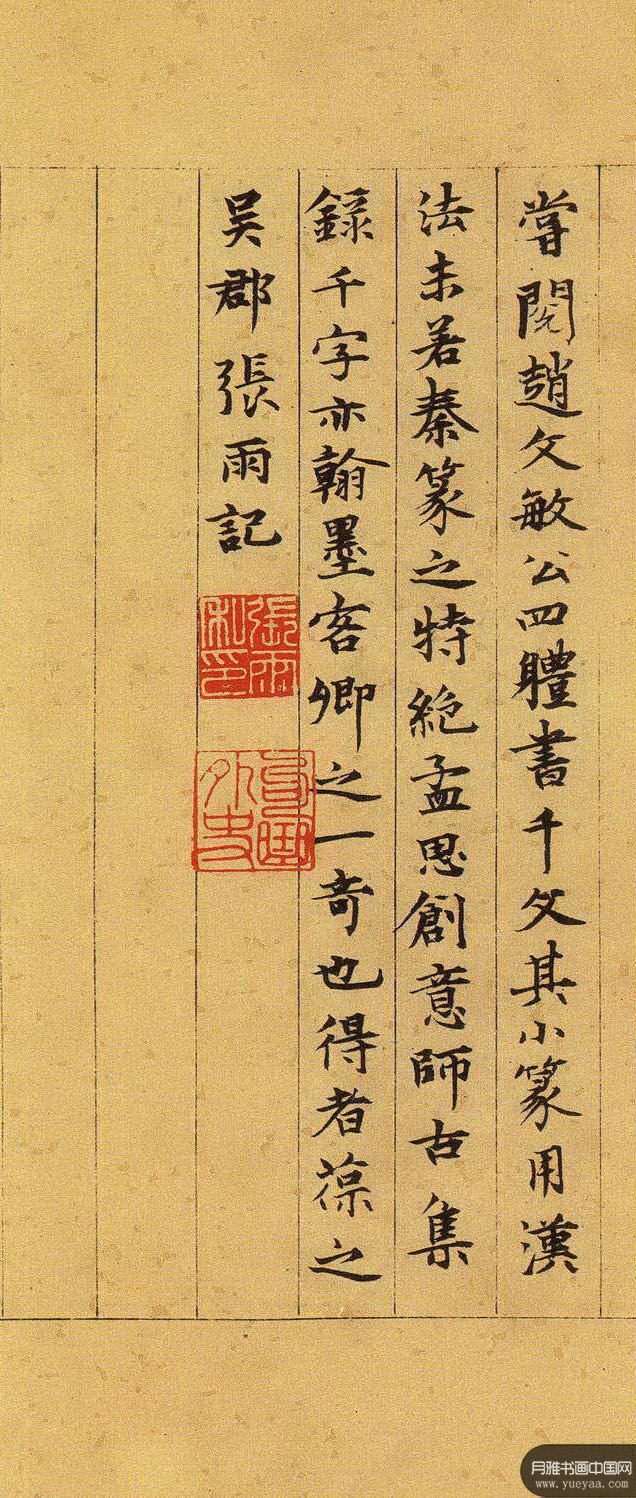 嘗閱趙文敏公四體書千文其小篆用漢
法未若秦篆之特絕孟思創意師古集
錄千字亦翰墨客卿之一奇也得者葆之
吳郡張雨記
張雨私印
月雅书画中国网
www.yueyaa.com